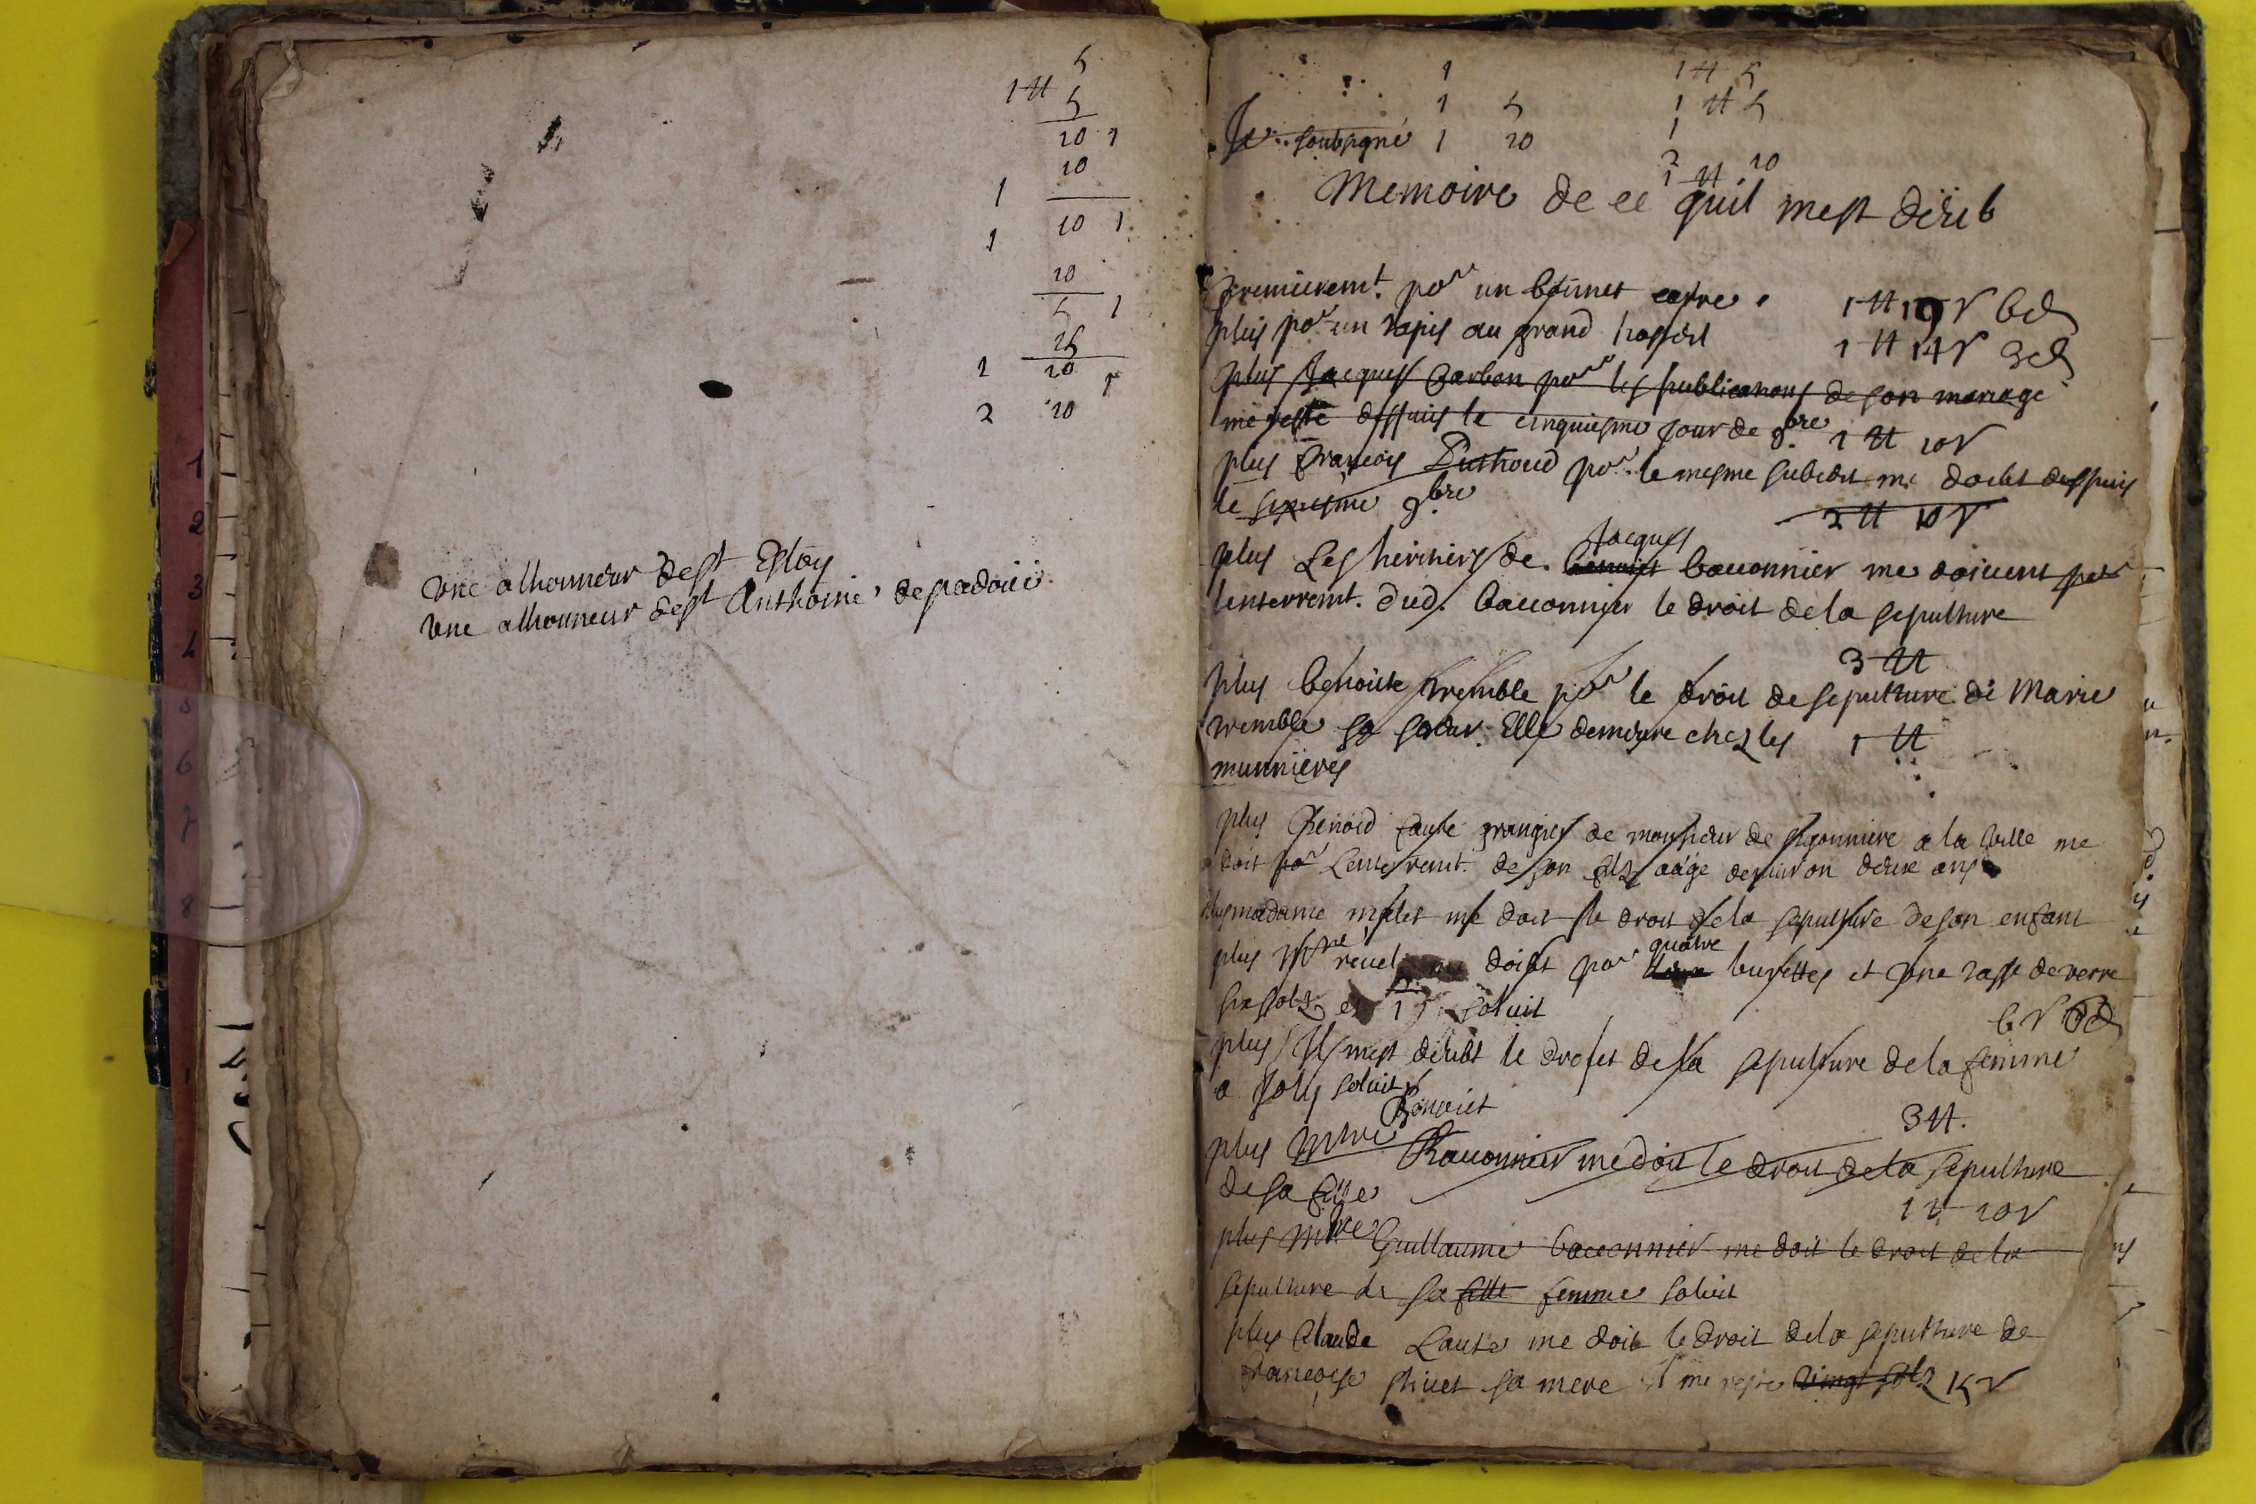 5
1 ₶ 5
10 1
10
1
1 10 1
10
5 1
15
1 10 1
2 10
Une alhonneur de st Esloy
Une alhonneur de st Anthoine de padoüe
1 1 ₶ 5
1 5 1 ₶ 5
Je soubsigné 1 10 1
2 10
1 ₶
Memoire de ce quil mest deub
premierem.t po.r un bonnet carré 1 ₶ 19 s 6 d
plus po.r un tapis au grand 1 ₶ 14 s 3 d
plus Jacques Carbon po.r les publications de son mariage
me reste despuis le cinquiesme jour de 9.bre 1 ₶ 10 s
plus françois po.r le mesme subiect me doibt despuis
le sixiesme 9.bre 2 ₶ 10 s
Jacques
plus Les heritiers de benoist bauonnier me doiuent po.r
lenterremt. dud. bauonnier le droit de la sepulture
3 ₶
plus benoiste tremble po.r le droit de sepulture de Marie
tremble sa soeur. Elle demeure chez les 1 ₶
munnieres
plus benoid laute grangier de monsieur de a la me
doit po.r Lenterremt. de son filz aagé denuiron deux ans
plus madame me doit le droit de la sepulture de son enfant
quatre
plus M.re reuel doibt po.r deux burettes et une tasse de verre
six solz et soluit 6 s d
plus Il mest deubt le droict de la sepulture de la femme
a Joly soluit
Benoict 3 ₶.
plus M.re Bauonnier me doit le droit de la sepulture
de sa fille
1 ₶ 10 s
plus M.re Guillaume bauonnier me doit le droit de la
sepulture de sa fille femme soluit
plus Claude Laute me doit le droit de la sepulture de
françoise sa mere il me reste vingt solz 15 s